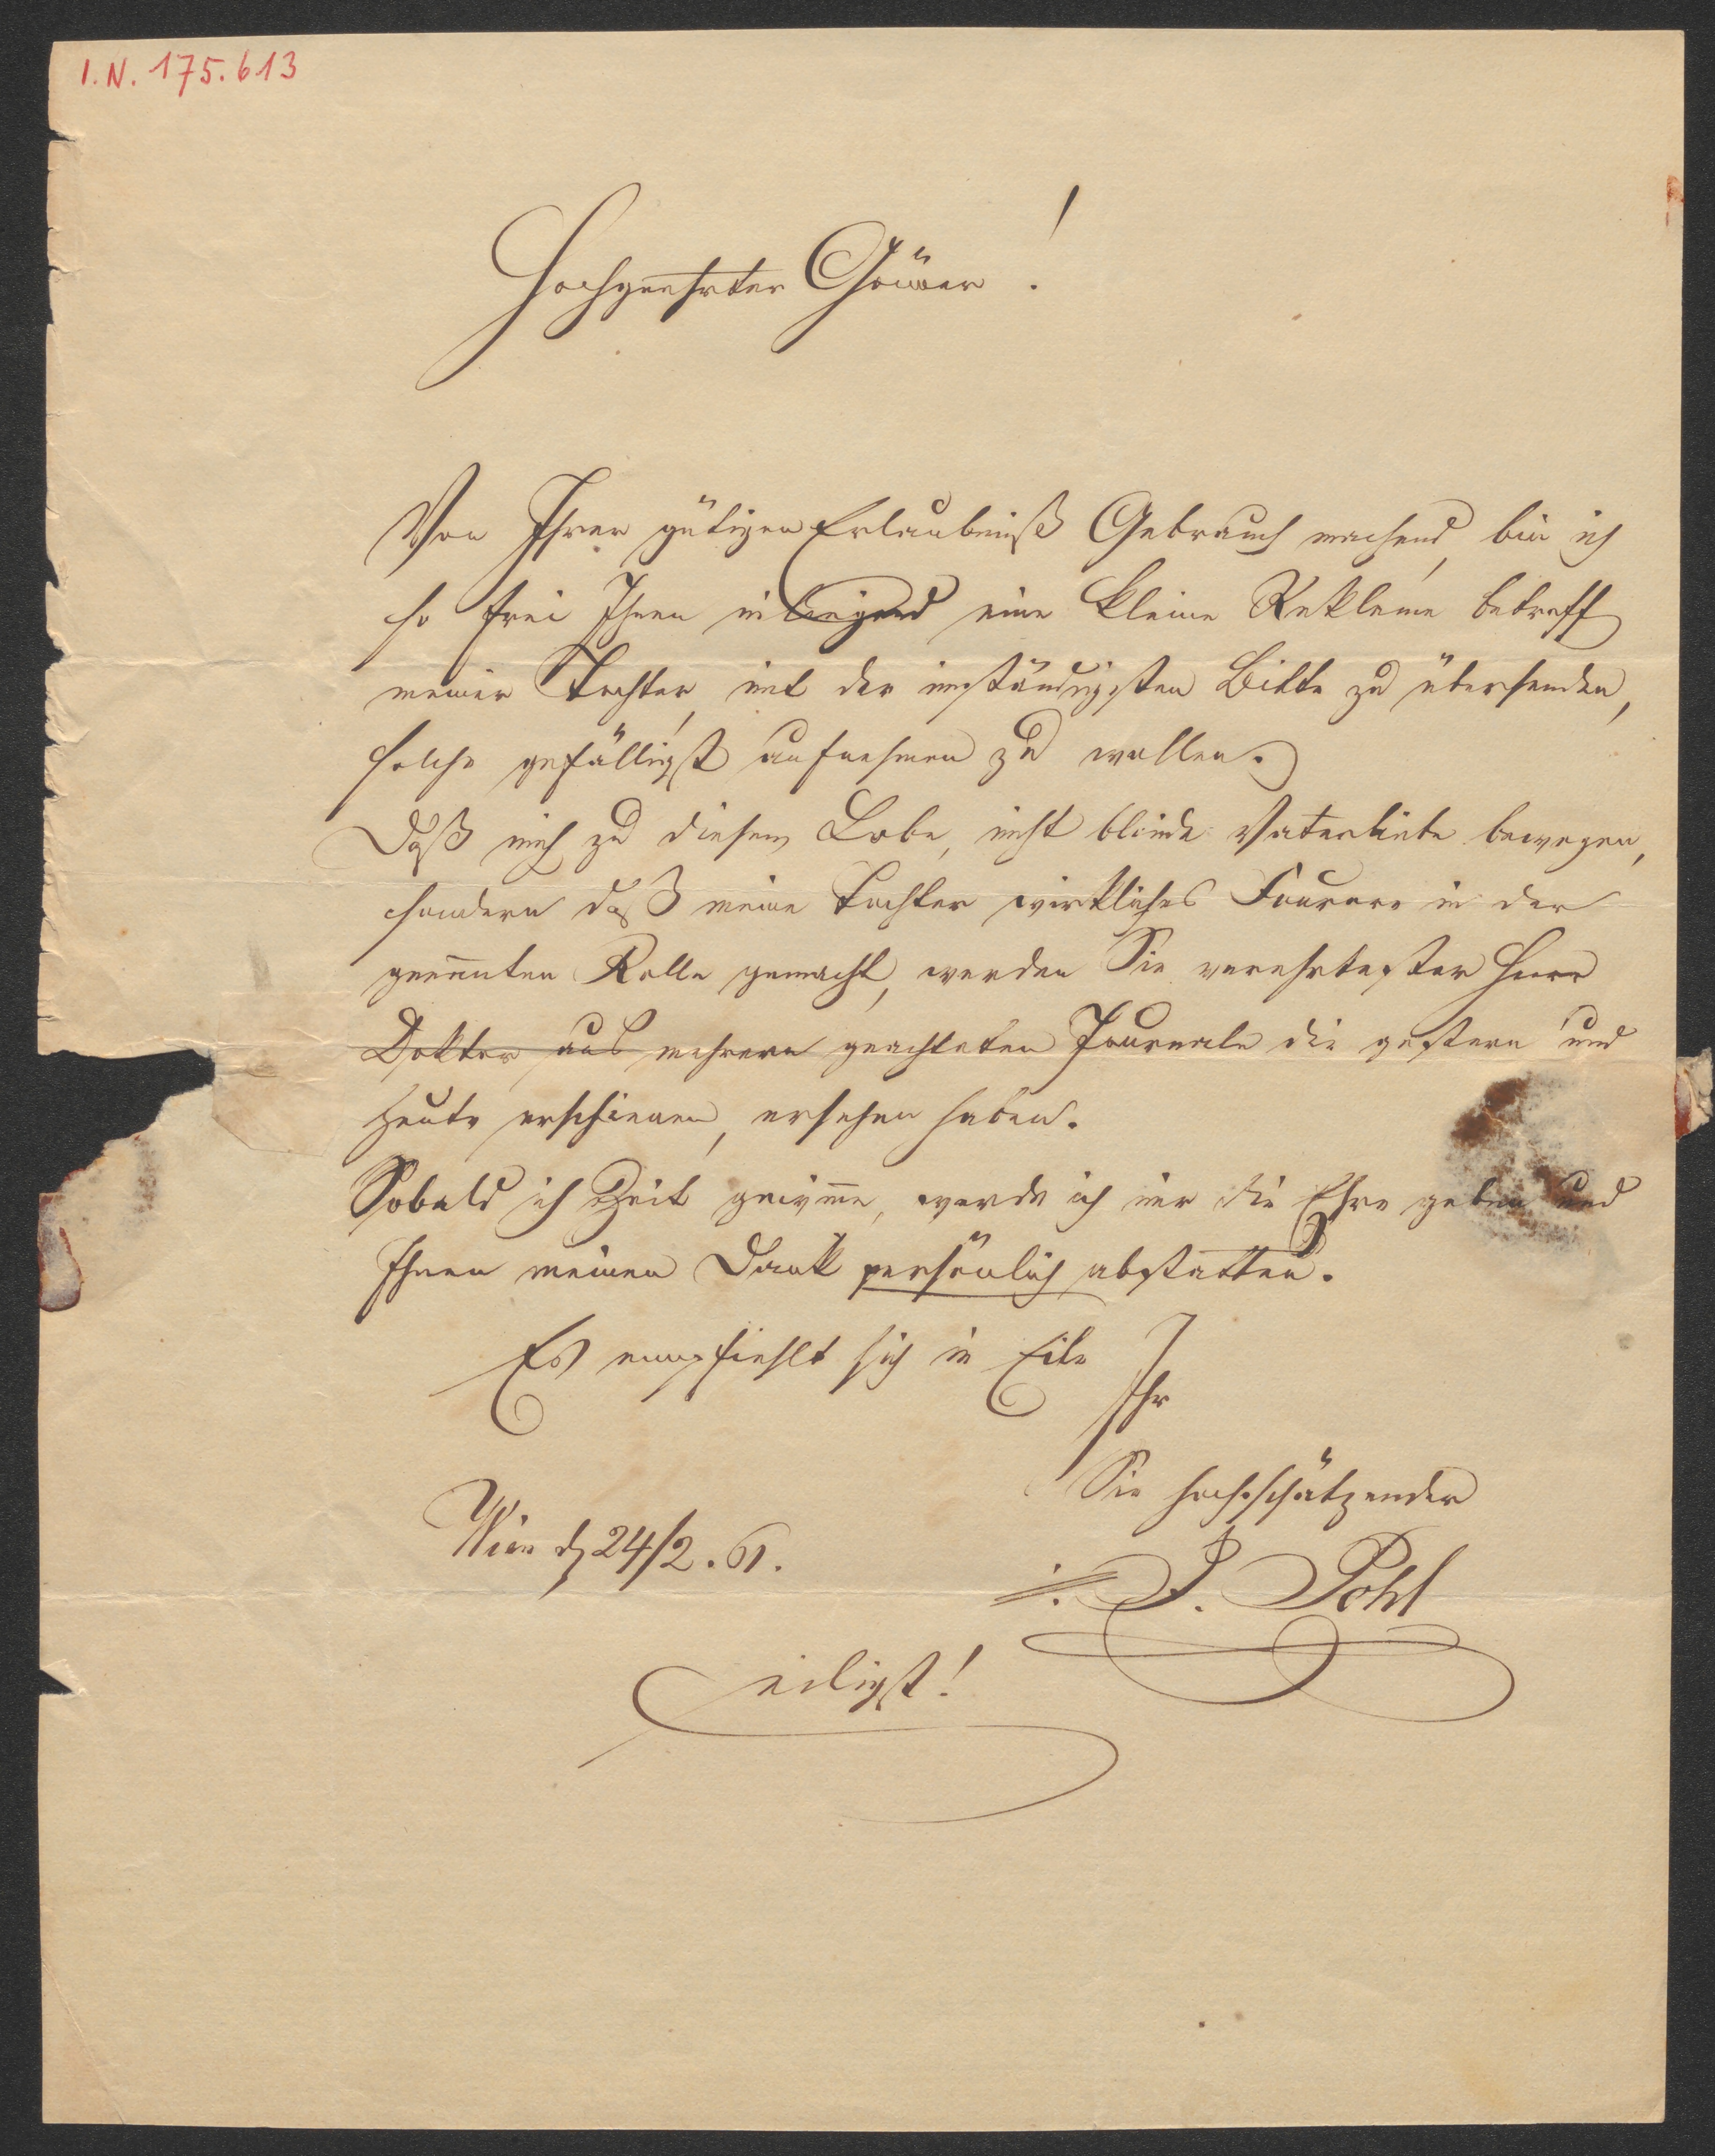 I.N. 175.613
Hochgeehrter Gönner!
Von Ihrer gütigen Erlaubniß Gebrauch machend, bin ich
so frei Ihnen inliegend eine kleine Reklame betreff
meiner Tochter, mit der inständigsten Bitte zu übersenden,
solche gefälligst aufnehmen zu wollen.
Daß mich zu diesem Lobe, nicht blinde Vaterliebe bewegen,
sondern daß meine Tochter wirkliches Fourore in der
genannten Rolle gemacht, werden Sie verehrtester Herr
Doktor aus mehrern geachteten Journale die gestern und
heute erschienen, ersehen haben.
Sobald ich Zeit gewinne, werde ich mir die Ehre geben und
Ihnen meinen Dank persönlich abstatten.
Es empfiehlt sich in Eile
Ihr
Sie hochschätzender
Wien d 24/2. 61.
J. Pohl
eiligst!